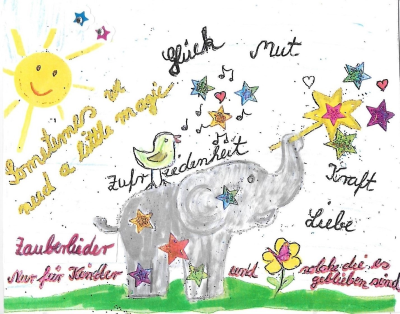 Glück Mut
Sometimes we
need a little magic
Zufriedenheit
Kraft
Liebe
Zauberlieder
Nur für Kinder und solche die es
geblieben sind